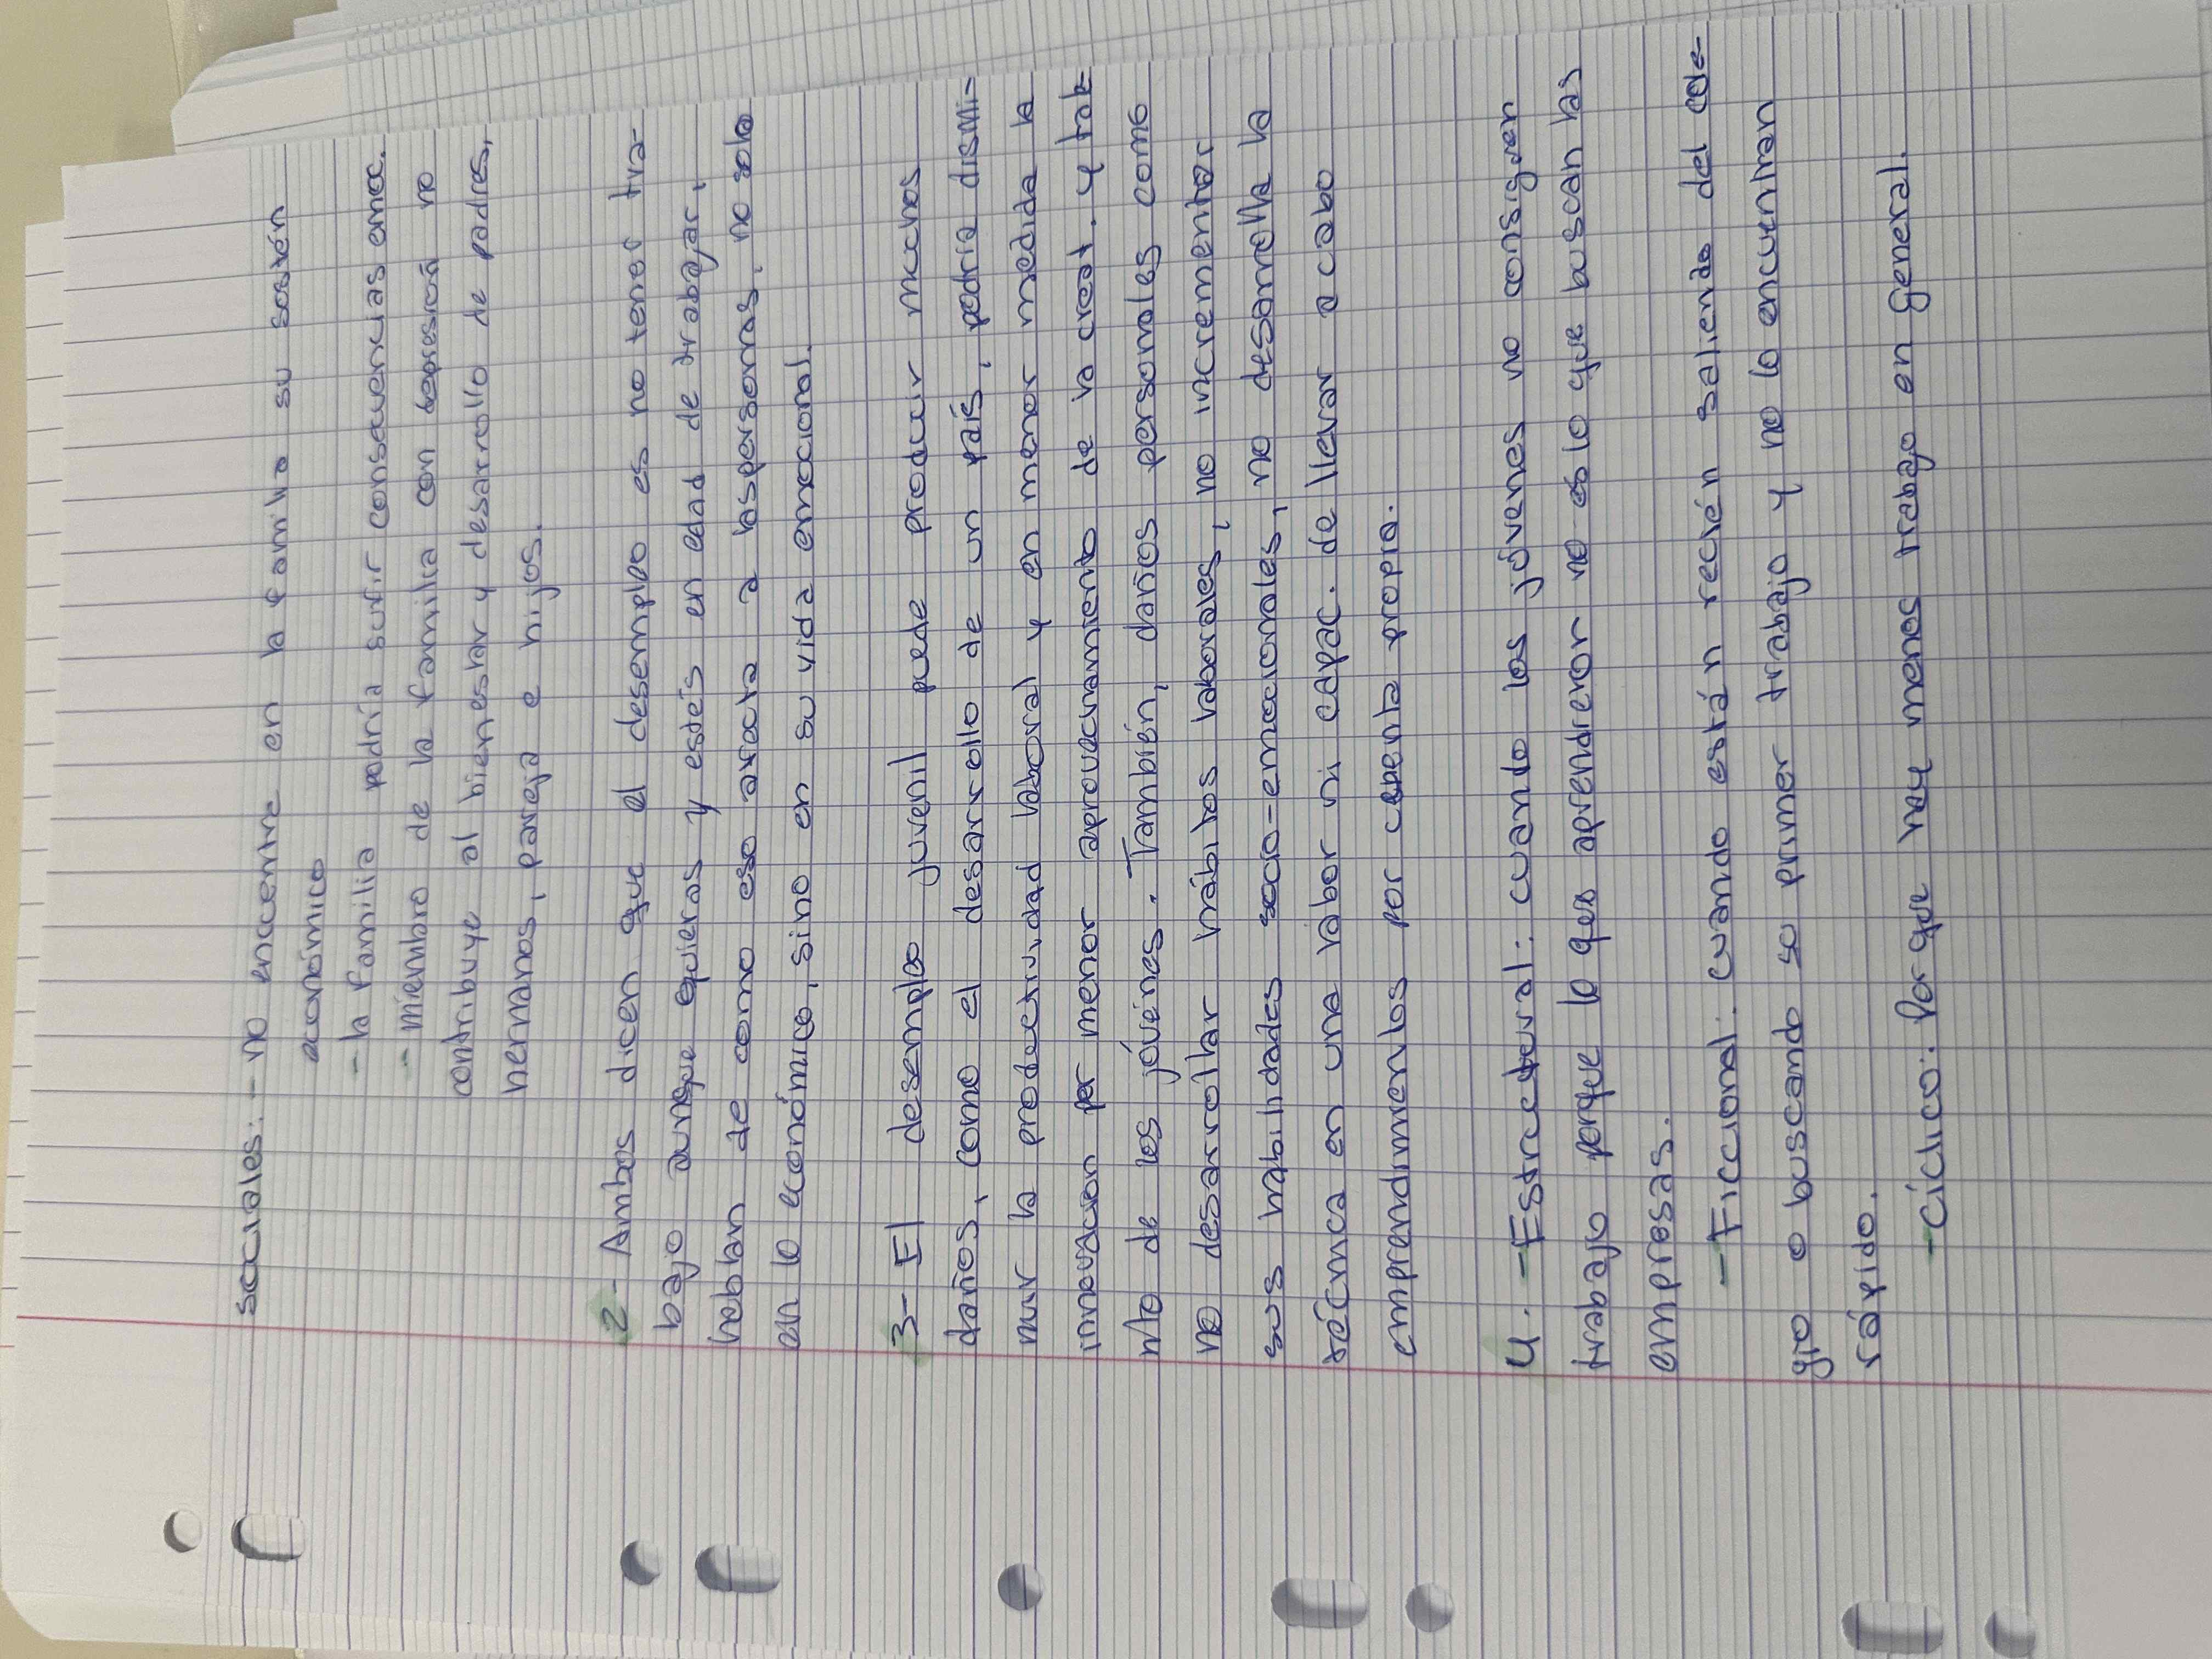 sociales: - no encuentra en la familia su sostén
económico
- la familia podría sufrir consecuencias emoc.
- miembro de la familia con depresión no
contribuye al bienestar y desarrollo de padres,
hermanos, pareja e hijos.
2- Ambos dicen que el desempleo es no tener tra-
bajo aunque quieras y estés en edad de trabajar,
hablan de como eso afecta a las personas, no solo
en lo económico, sino en su vida emocional.
3- El desempleo juvenil puede producir muchos
daños, como el desarrollo de un país, podría dismi-
nuir la productividad laboral y en menor medida la
innovacion por menor aprovechamiento de la creat. y tale
nto de los jóvenes. También, daños personales como
no desarrollar hábitos laborales, no incrementar
sus habilidades socio-emocionales, no desarrolla la
técnica en una labor ni capac. de llevar a cabo
emprendimientos por cuenta propia.
4. - Estructural: cuando los jóvenes no consiguen
trabajo porque lo que aprendieron no es lo que buscan las
empresas.
- Ficcional: cuando están recién saliendo del cole-
gio o buscando su primer trabajo y no lo encuentran
rápido.
- Cíclico: Porque hay menos trabajo en general.